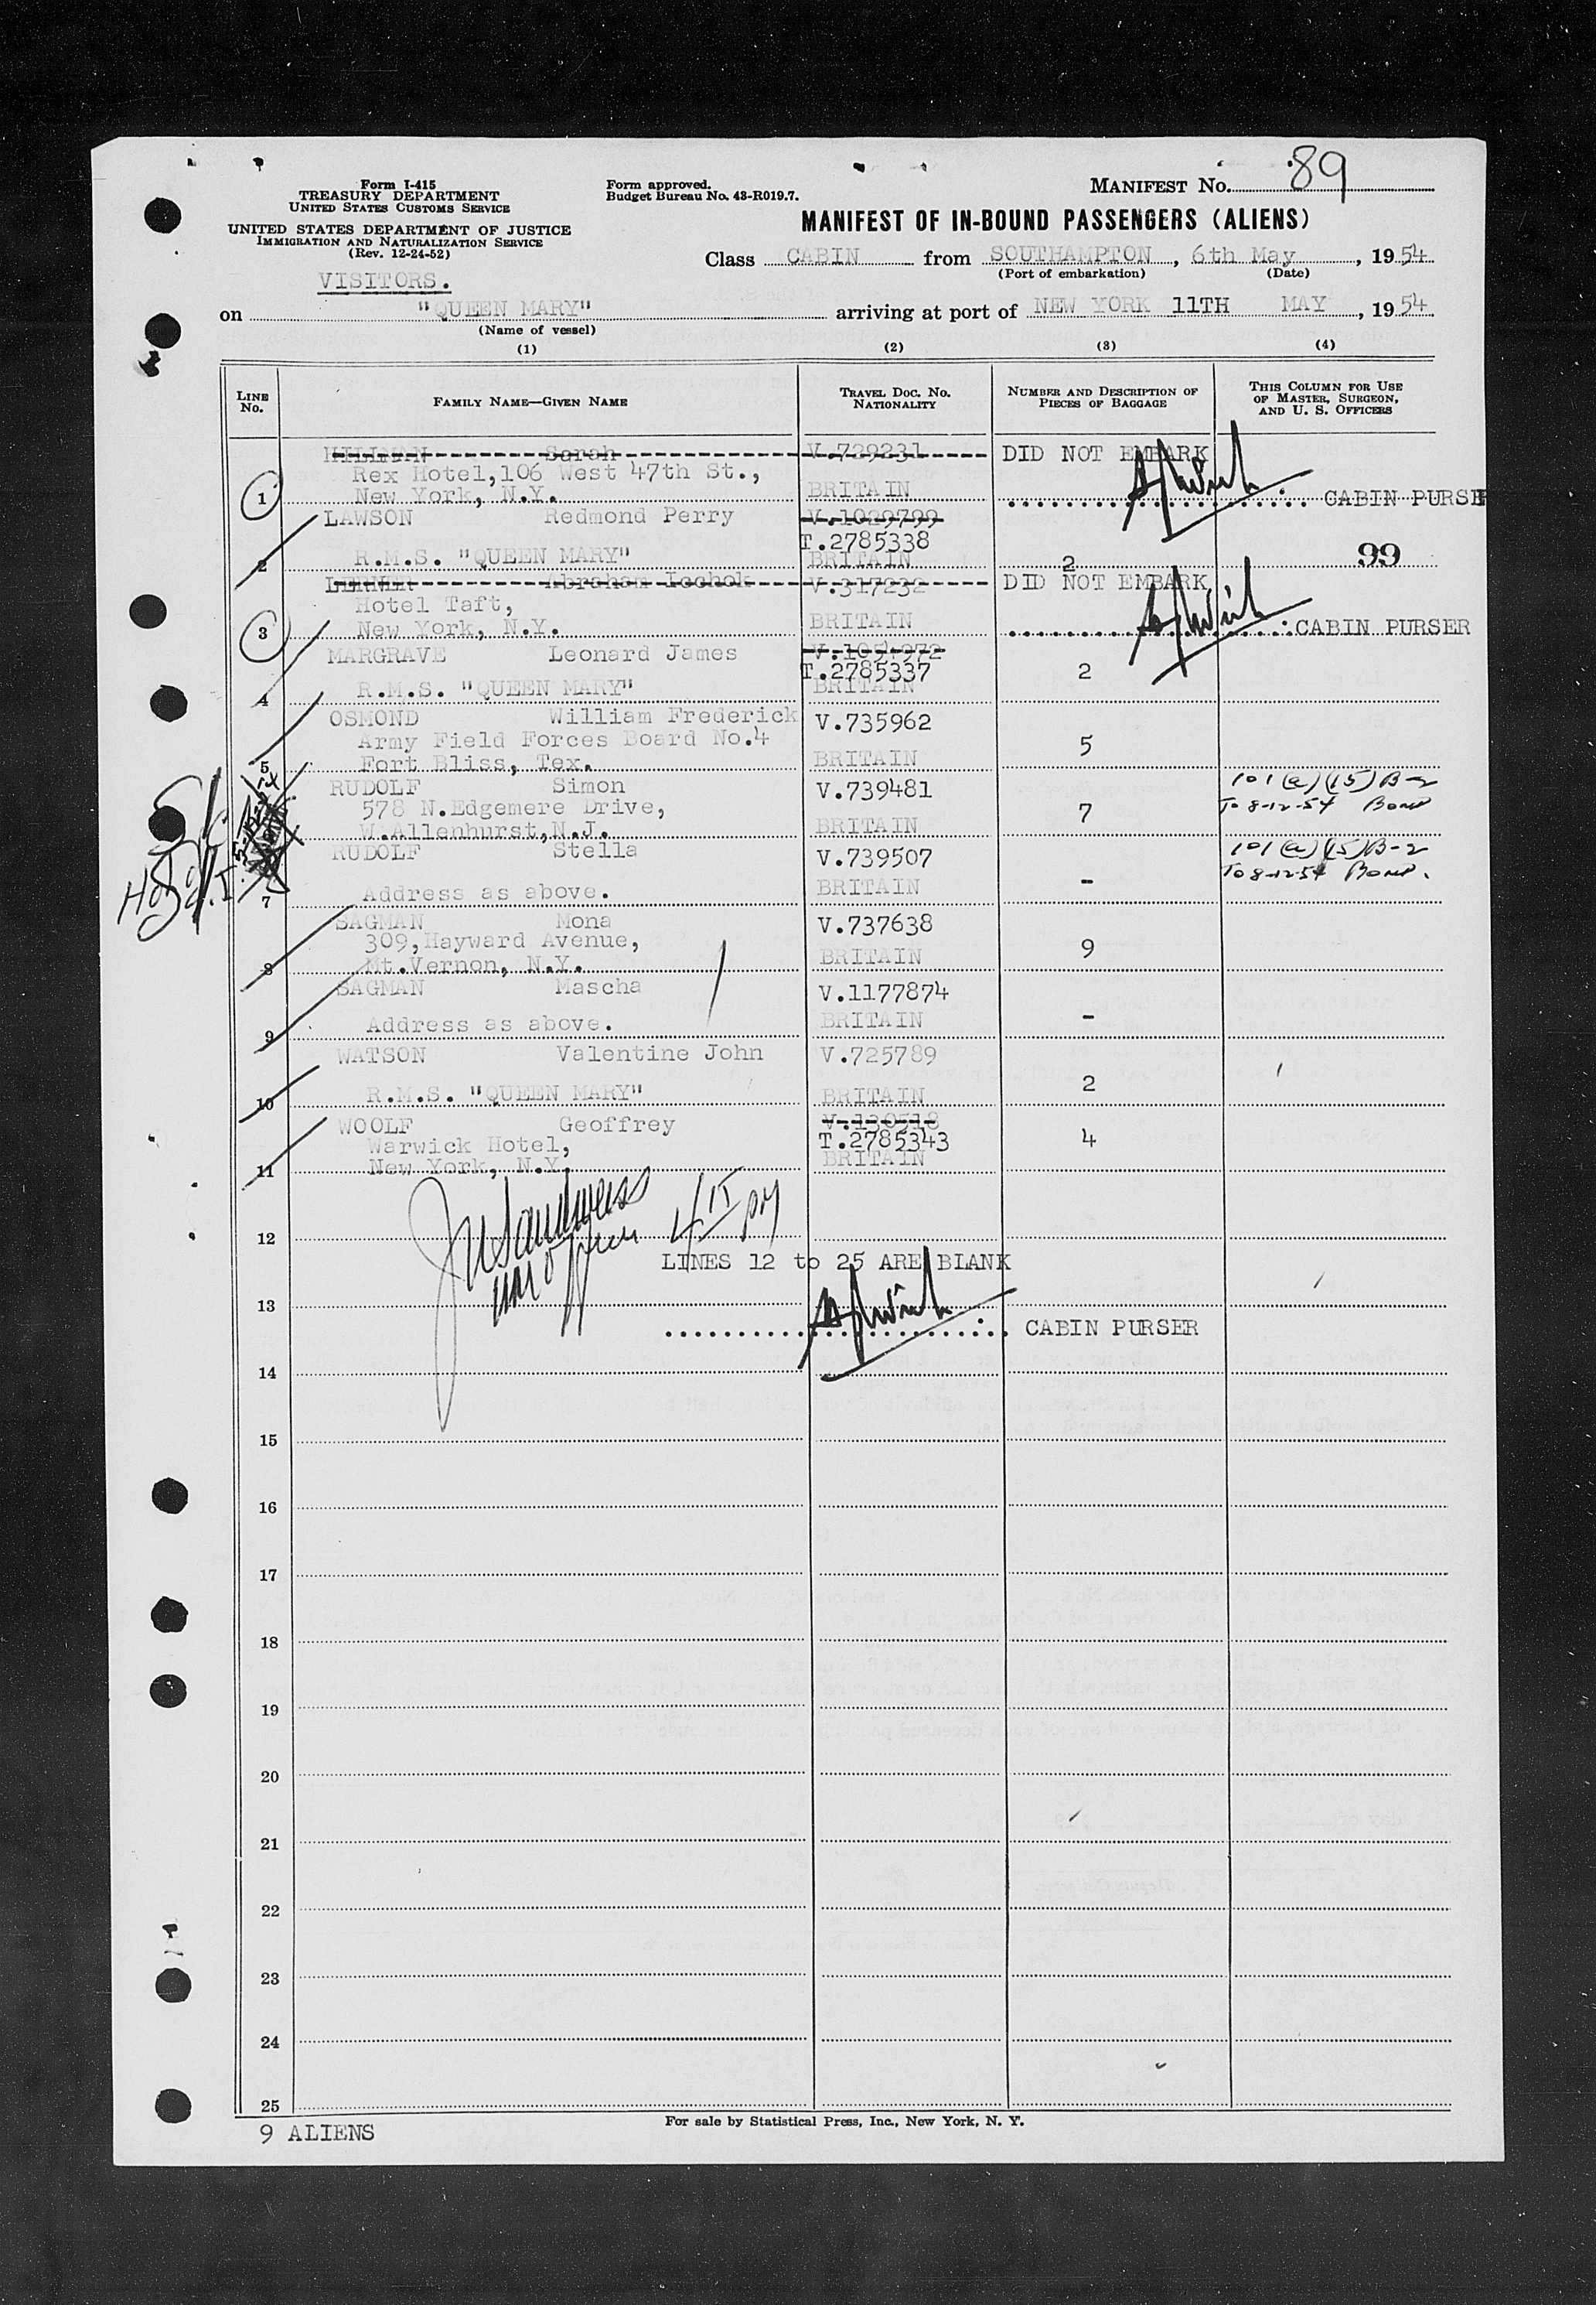 Form I-415
TREASURY DEPARTMENT
UNITED STATES CUSTOMS SERVICE
UNITED STATES DEPARTMENT OF JUSTICE
IMMIGRATION AND NATURALIZATION SERVICE
(Rev. 12-24-52)
VISITORS.
Form approved.
Budget Bureau No. 43-R019.7.
MANIFEST No. 89
MANIFEST OF IN-BOUND PASSENGERS (ALIENS)
Class CABIN from SOUTHAMPTON, 6th May, 1954
(Port of embarkation) (Date)
on "QUEEN MARY" arriving at port of NEW YORK 11TH MAY, 1954
(Name of vessel)
(1) (2) (3) (4)
LINE No. FAMILY NAME—GIVEN NAME TRAVEL DOC. No. NATIONALITY NUMBER AND DESCRIPTION OF PIECES OF BAGGAGE THIS COLUMN FOR USE OF MASTER, SURGEON, AND U. S. OFFICERS
HILLMAN Sarah V.729231 DID NOT EMBARK
Rex Hotel,106 West 47th St.,
1 New York, N.Y. BRITAIN CABIN PURSER
LAWSON Redmond Perry V.1029799
T.2785338
2 R.M.S. "QUEEN MARY" BRITAIN 2 99
LERNER Abraham Icchok V.317232 DID NOT EMBARK
Hotel Taft,
3 New York, N.Y. BRITAIN CABIN PURSER
MARGRAVE Leonard James
T.2785337 2
4 R.M.S. "QUEEN MARY" BRITAIN
OSMOND William Frederick V.735962
Army Field Forces Board No.4 5
5 Fort Bliss, Tex. BRITAIN
RUDOLF Simon V.739481 101 (a) (15) B-2
578 N.Edgemere Drive, 7 To 8-12-54 Bond
W.Allenhurst,N.J. BRITAIN
RUDOLF Stella V.739507 101 (a) (15) B-2
To 8-12-54 Bond.
7 Address as above. BRITAIN -
SAGMAN Mona V.737638
309,Hayward Avenue, 9
8 Mt.Vernon, N.Y. BRITAIN
SAGMAN Mascha V.1177874
9 Address as above. BRITAIN -
WATSON Valentine John V.725789
10 R.M.S. "QUEEN MARY" BRITAIN 2
WOOLF Geoffrey V.130518
Warwick Hotel, T.2785343 4
11 New York, N.Y. BRITAIN
12
LINES 12 to 25 ARE BLANK
13
CABIN PURSER
14
15
16
17
18
19
20
21
22
23
24
25
For sale by Statistical Press, Inc., New York, N. Y.
9 ALIENS